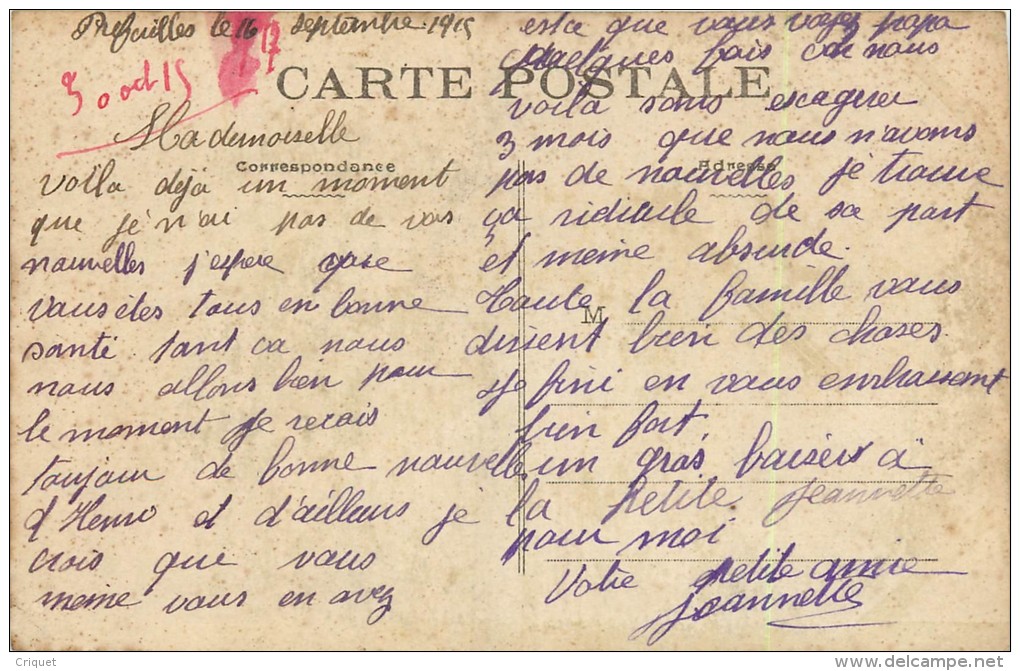 Prefailles le 16 septembre 1915
17
30 oct 15
CARTE POSTALE
Correspondance
Adresse
Mademoiselle
voila déjà un moment
que je n'ai pas de vos
nouvelles j'espere que
vous êtes tous en bonne
santé tant ca nous
nous allons bien pour
le moment je recois
toujour de bonne nouvelle
d'Henri et d'ailleurs je
crois que vous
meme vous en avez
est ce que vous voyez papa
quelques fois car nous
voila sans exagerer
3 mois que nous n'avons
pas de nouvelles je trouve
ça ridicule de sa part
et meme absurde.
Haute la famille vous
M
disent bien des choses
je fini en vous embrassent
bien fort
un gros baisers à
la petite Jeannette
pour moi
Votre petite amie
Jeannette
© Criquet
www.delcampe.net